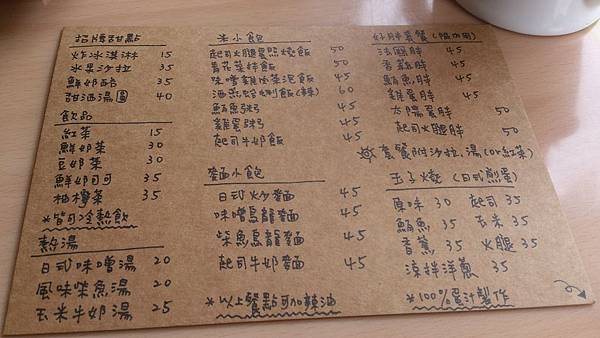 招牌甜點
炸冰淇淋 15
水果沙拉 35
鮮奶酪 35
甜酒湯圓 40
飲品
紅茶 15
鮮奶茶 30
豆奶茶 30
鮮奶可可 35
柚檸茶 35
*皆可冷熱飲
熱湯
日式味噌湯 20
風味柴魚湯 20
玉米牛奶湯 25
米小飽
起司火腿蛋燒飯 50
青花菜拌飯 50
味噌雞肉菜泡飯 50
酒蒸蛤蜊飯(辣) 60
鮪魚粥 45
雞蛋粥 45
起司牛奶飯 45
麵小飽
日式炒麵 45
味噌烏龍麵 45
柴魚烏龍麵 45
起司牛奶麵 45
*以上餐點可加辣油
好胖套餐
法國胖 45
香蒜胖 45
鮪魚胖 45
雞蛋胖 45
太陽蛋胖 50
起司火腿胖 50
套餐附沙拉,湯(or紅茶)
玉子燒(日式煎蛋)
原味 30 起司 35
鮪魚 35 玉米 35
香蔥 35 火腿 35
涼拌洋蔥 35
*100%蛋汁製作